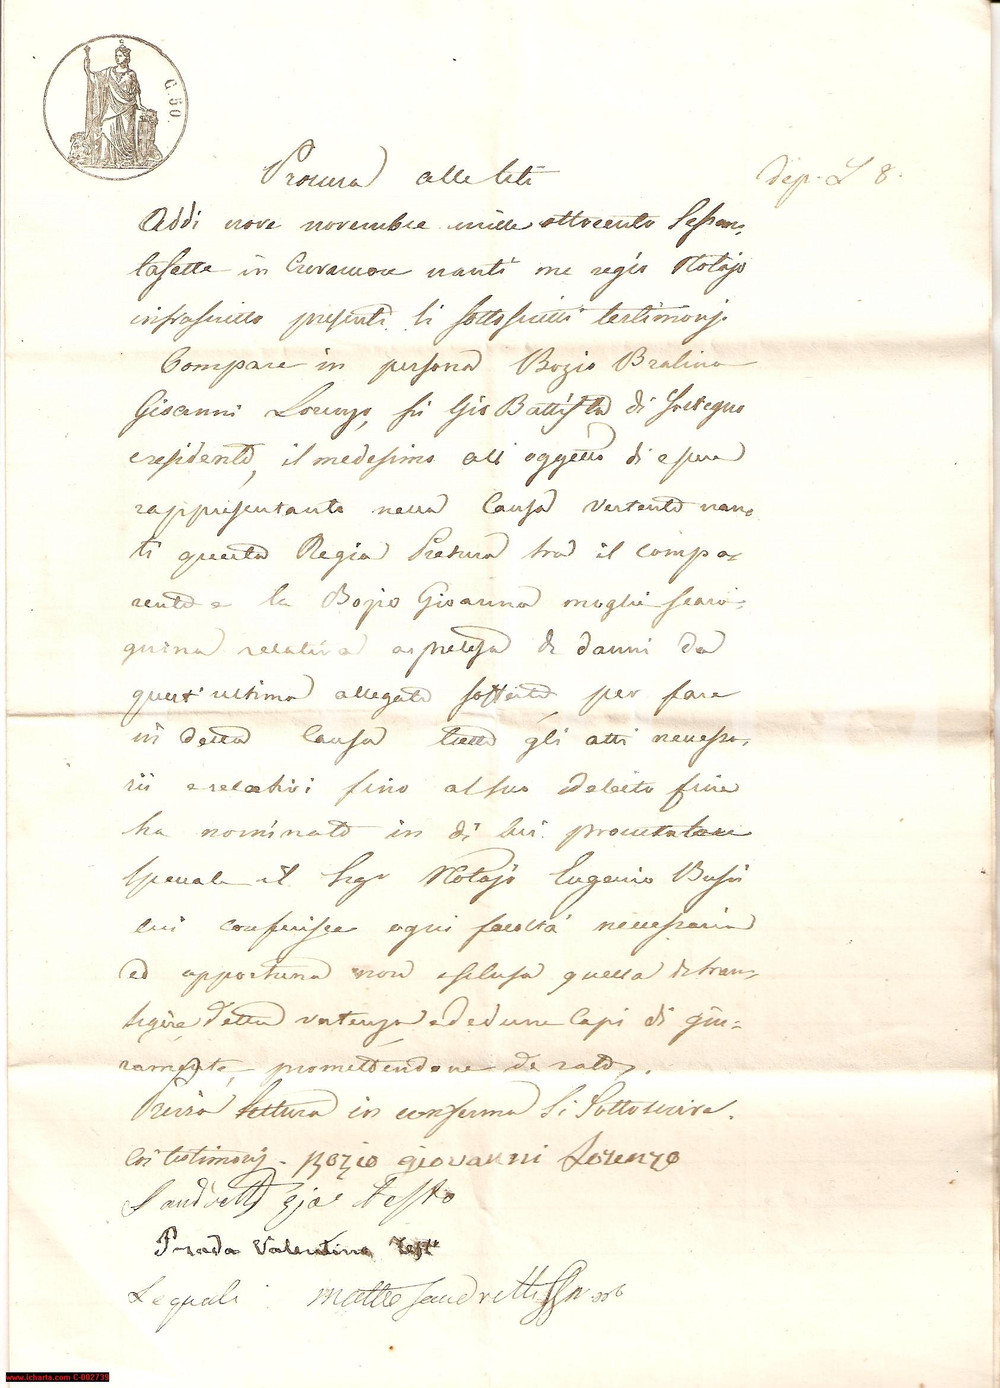 C. 50.
Procura alle liti
dep. L 8.
Addi nove novembre mille ottocento Sessan,
tasette in Crevacuore nanti me regio Notajo
infrascritto presenti li sottoscritti testimonj.
Compare in persona Bozio Bralino
Giovanni Lorenzo, fu Gio Battista di Sostegno
e residente, il medesimo all oggetto di essere
rappresentante nella Causa Vertente nan,
ti questa Regia Pretura tra il compa=
rente e la Bozio Giovanna moglie
relativa a di danni da
quest'ultima allegati sofferti, per fare
in detta Causa tutti gli atti necessa,
rii e relativi fino al suo debito fine
ha nominato in di lui procuratore
Speciale il Sigr Notajo Eugenio
cui conferisce ogni facoltà necessaria
ed opportuna non esclusa quella di tran=
sigere detta vertenza ed Capi di giu=
ramento, promettendone de rato,.
Previa lettura in conferma Si Sottoscrive.
Coi testimonj - Bozio giovanni Lorenzo
Sandretti testo
Prada Valentino Test
Matteo Sandretti
www.icharta.com C-002739